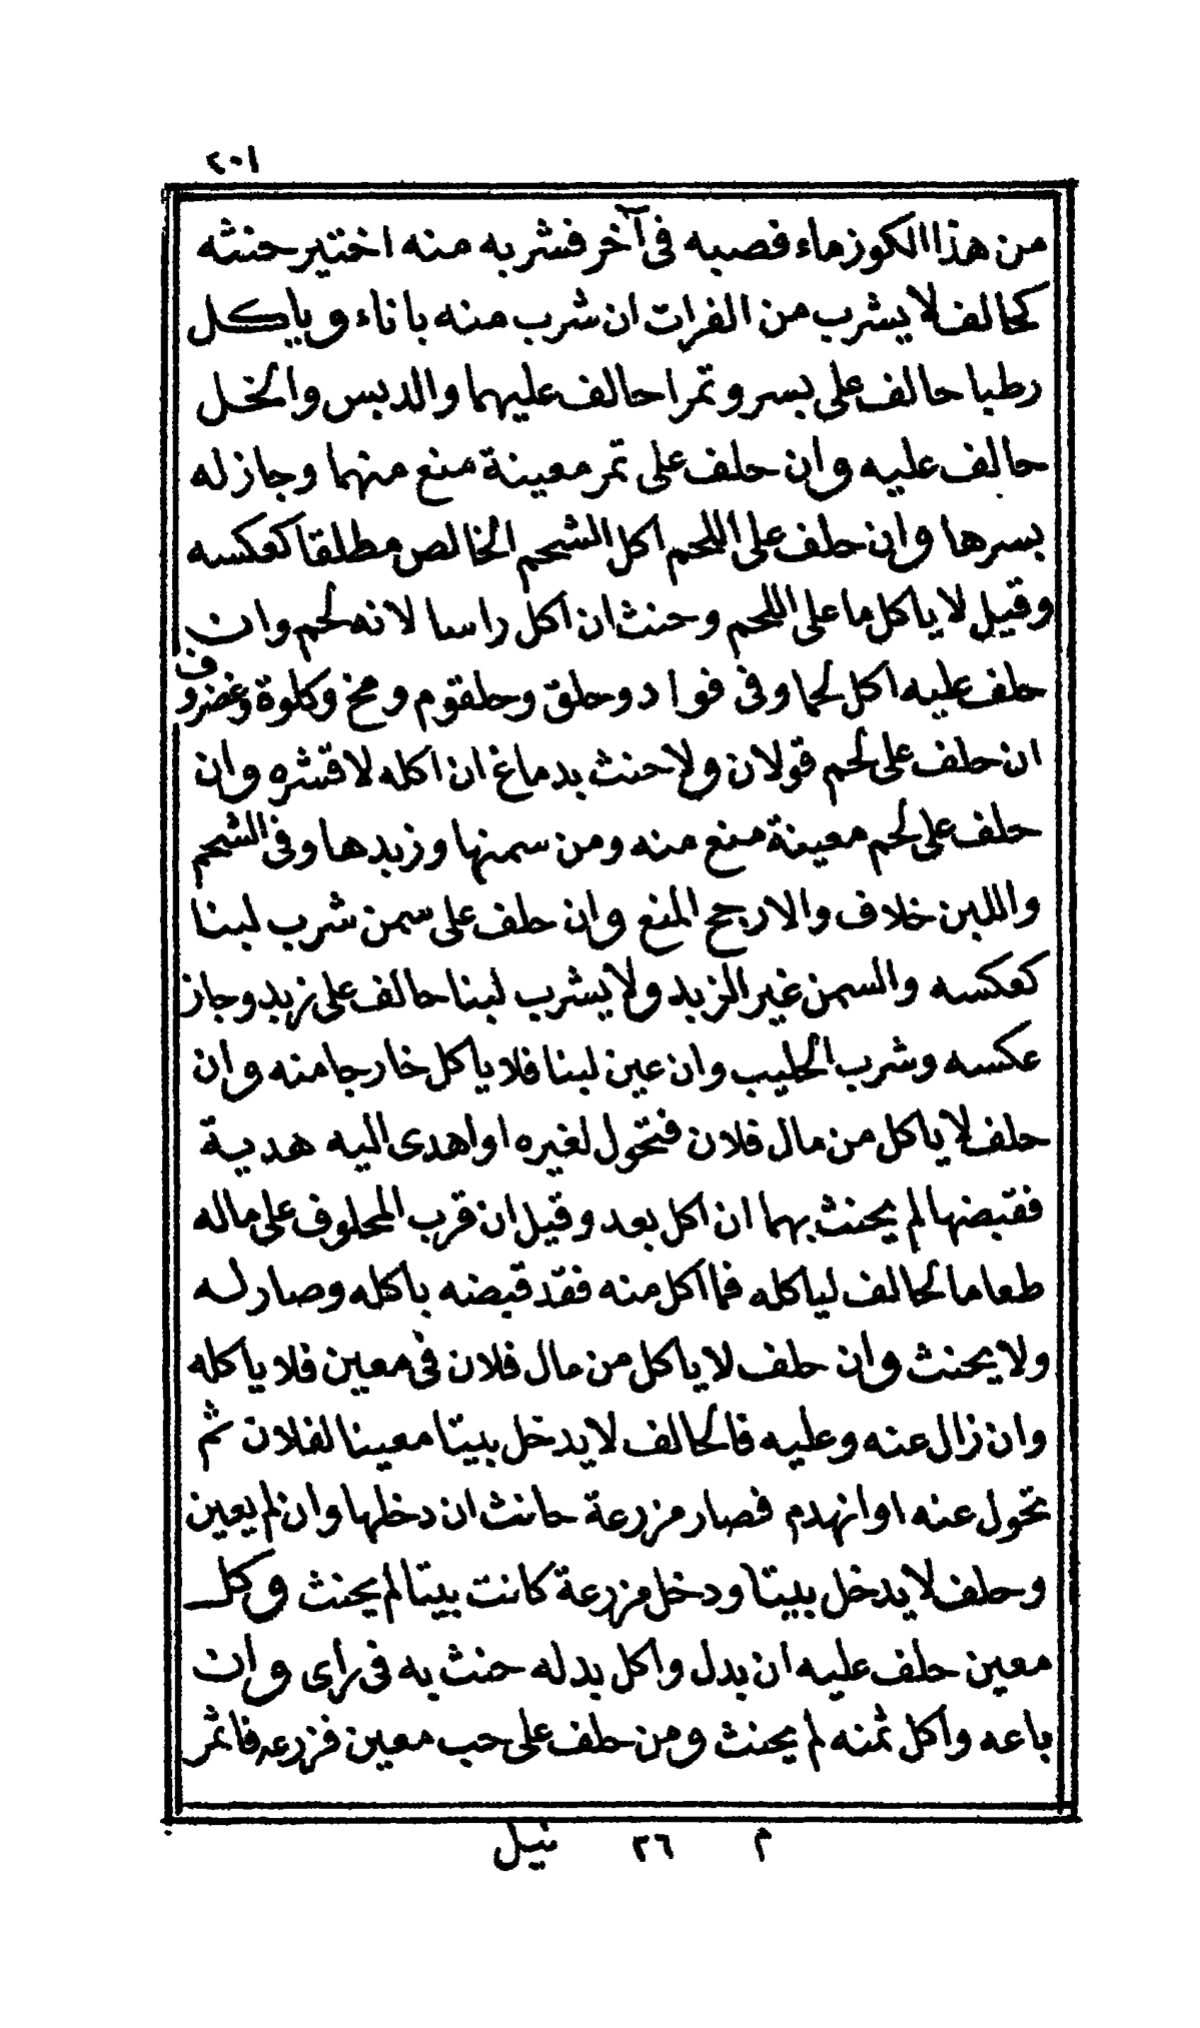 ٢٠١
من هذا الكوز ماء فصبه فى آخر فشربه منه اختير حنثه
كحالف لا يشرب من الفرات ان شرب منه باناء وياكل
رطبا حالف على بسر وتمرا حالف عليهما والدبس والخل
حالف عليه وان حلف على تمر معينة منع منهما وجاز له
بسرها وان حلف على اللحم اكل الشحم الخالص مطلقا كعكسه
وقيل لا ياكل ما على اللحم وحنث ان اكل راسا لانه لحم وان
حلف عليه اكل لحما وفى فواد وحلق وحلقوم ومخ وكلوة وغضروف
ان حلف على لحم قولان ولا حنث بدماغ ان اكله لا قشره وان
حلف على لحم معينة منع منه ومن سمنها وزبدها وفى الشحم
واللبن خلاف والارجح المنع وان حلف على سمن شرب لبنا
كعكسه والسمن غير الزبد ولا يشرب لبنا حالف على زبد وجاز
عكسه وشرب الحليب وان عين لبنا فلا ياكل خارجا منه وان
حلف لا ياكل من مال فلان فتحول لغيره او اهدى اليه هدية
فقبضها لم يحنث بهما ان اكل بعد وقيل ان قرب المحلوف على ماله
طعاما لحالف لياكله فما اكل منه فقد قبضه باكله وصار له
ولا يحنث وان حلف لا ياكل من مال فلان فى معين فلا ياكله
وان زال عنه وعليه فالحالف لا يدخل بيتا معينا لفلان ثم
تحول عنه او انهدم فصار مزرعة حانث ان دخلها وان لم يعين
وحلف لا يدخل بيتا ودخل مزرعة كانت بيتا لم يحنث وكل
معين حلف عليه ان بدل واكل بدله حنث به فى راى وان
باعه واكل ثمنه لم يحنث ومن حلف على حب معين فزرعه فاثمر
م ٢٦ نيل